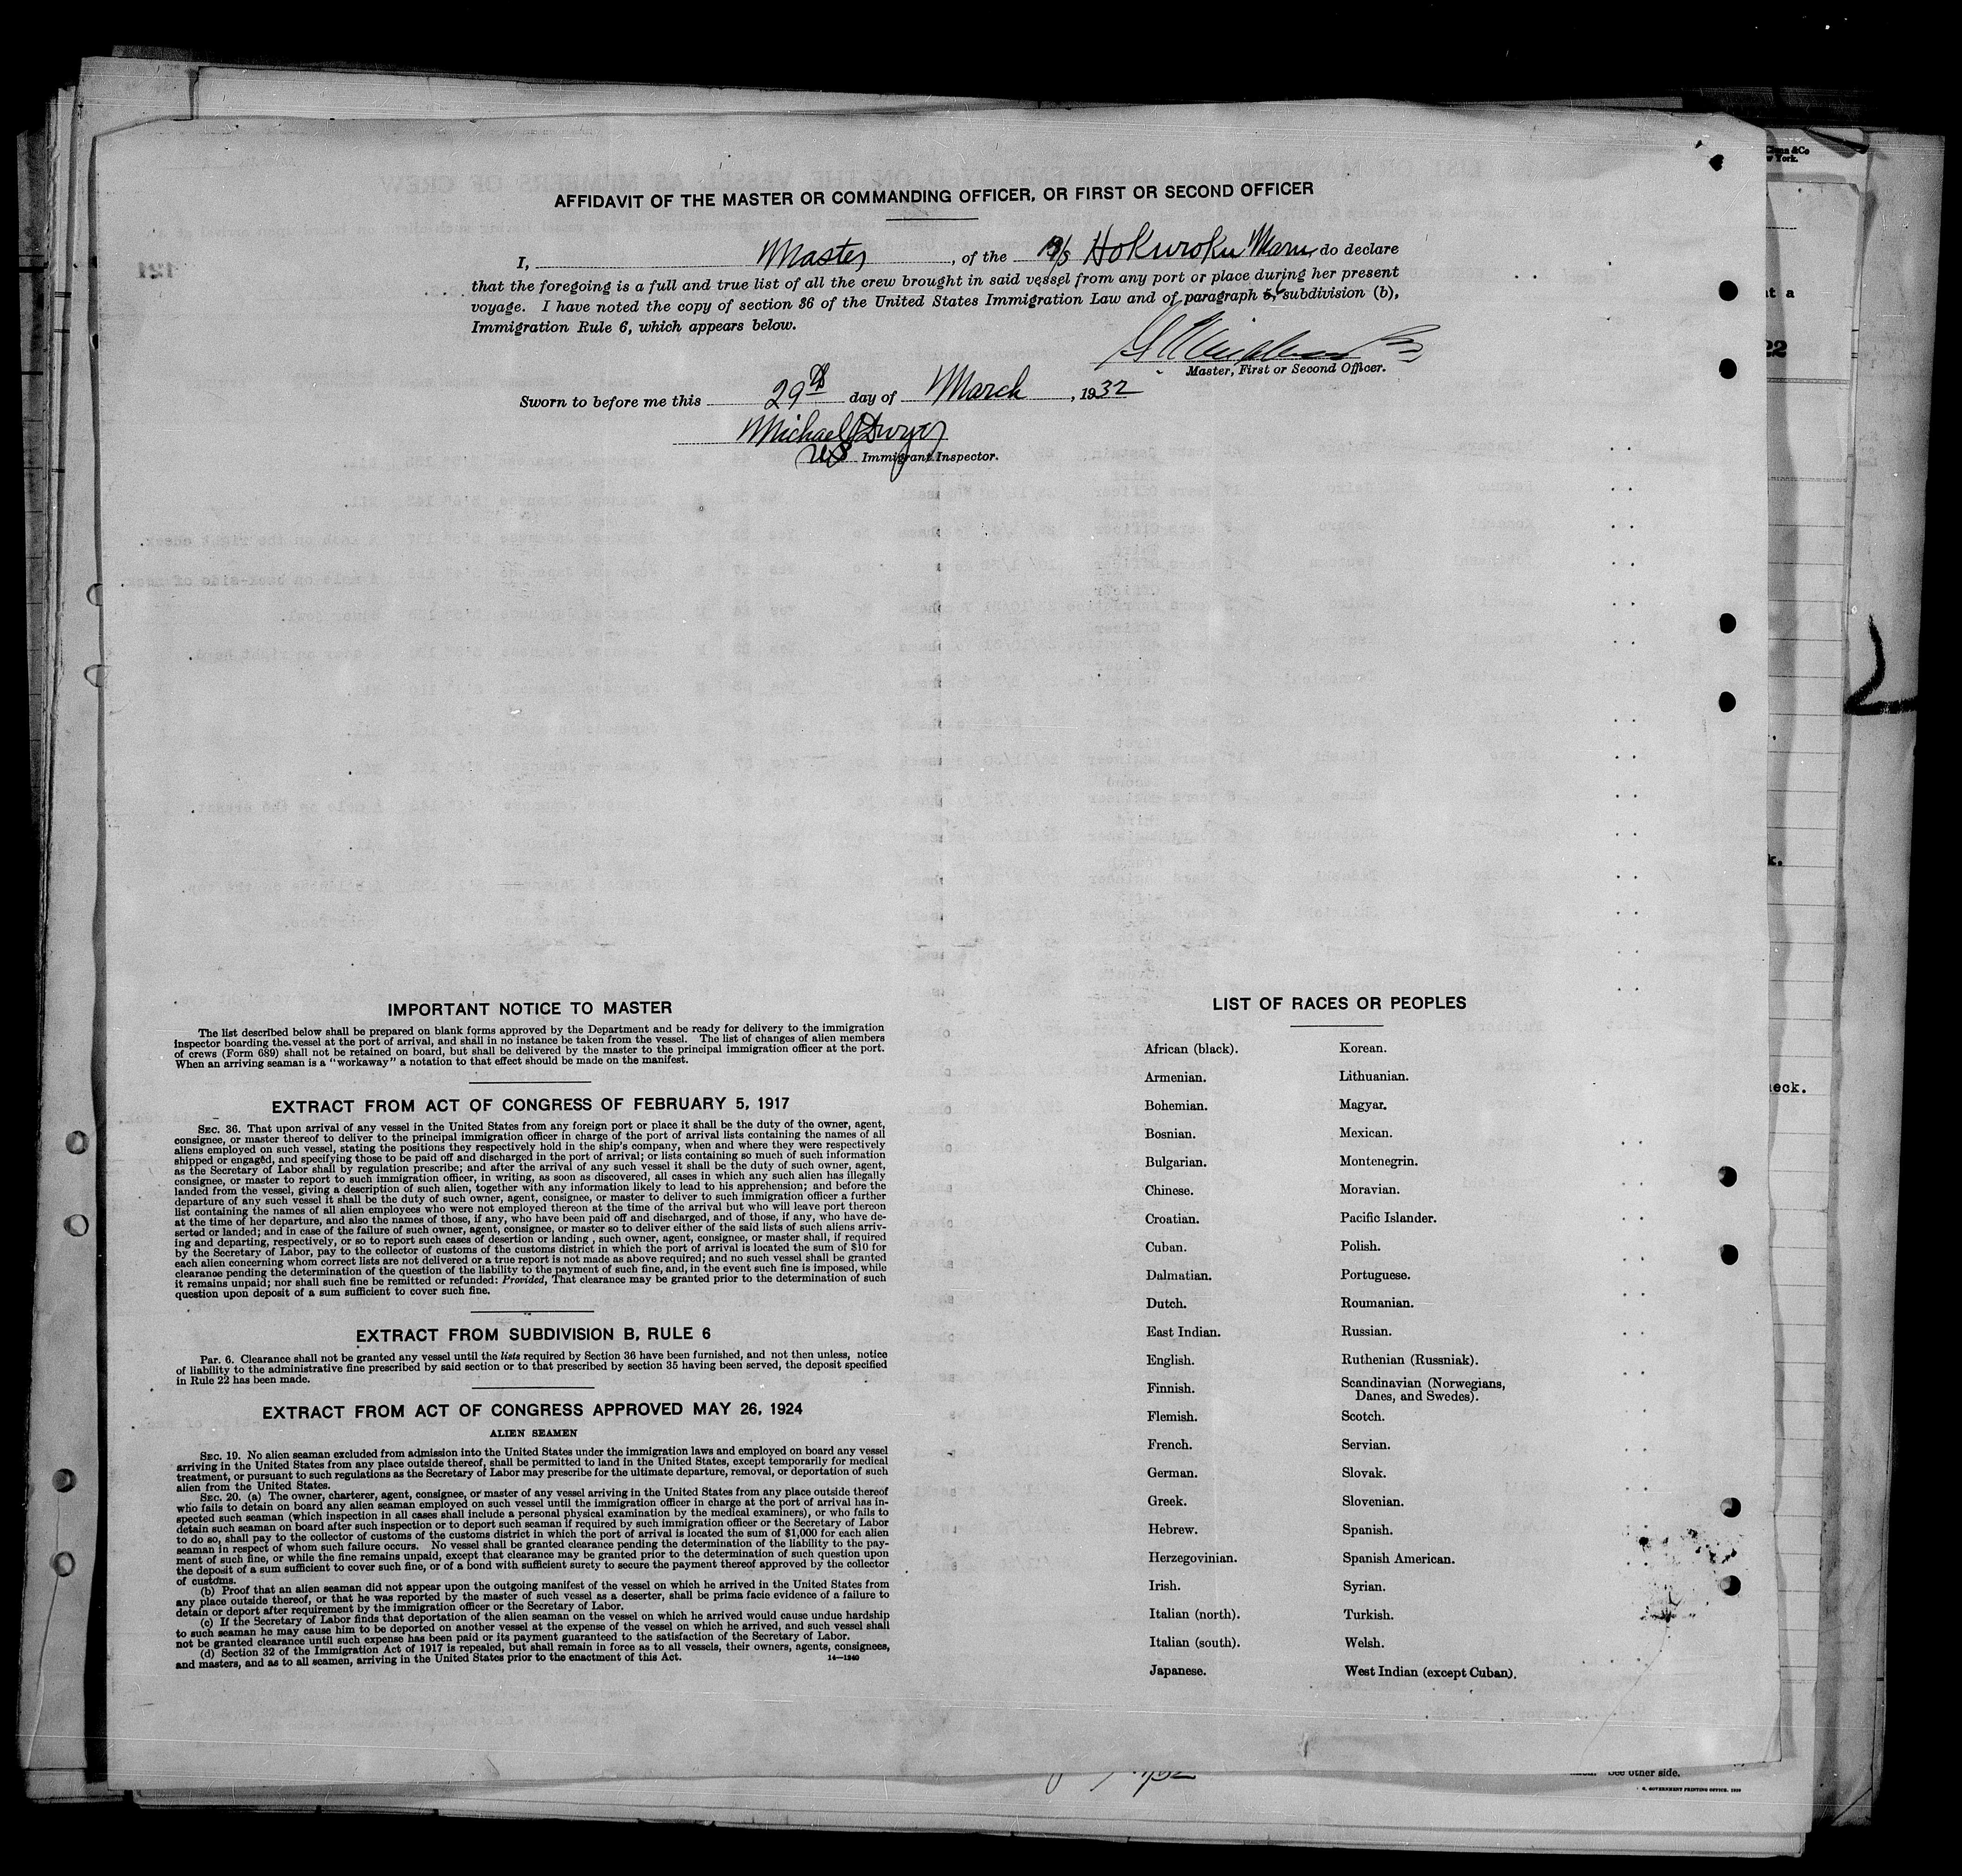 AFFIDAVIT OF THE MASTER OR COMMANDING OFFICER, OR FIRST OR SECOND OFFICER
I, Master, of the M/S Hokuroku Maru, do declare
that the foregoing is a full and true list of all the crew brought in said vessel from any port or place during her present
voyage. I have noted the copy of section 36 of the United States Immigration Law and of paragraph 5, subdivision (b),
Immigration Rule 6, which appears below.
Master, First or Second Officer.
Sworn to before me this 29th day of March, 1932
Michael Dwyer
US Immigrant Inspector.
IMPORTANT NOTICE TO MASTER
The list described below shall be prepared on blank forms approved by the Department and be ready for delivery to the immigration
inspector boarding the vessel at the port of arrival, and shall in no instance be taken from the vessel. The list of changes of alien members
of crews (Form 689) shall not be retained on board, but shall be delivered by the master to the principal immigration officer at the port.
When an arriving seaman is a "workaway" a notation to that effect should be made on the manifest.
EXTRACT FROM ACT OF CONGRESS OF FEBRUARY 5, 1917
SEC. 36. That upon arrival of any vessel in the United States from any foreign port or place it shall be the duty of the owner, agent,
consignee, or master thereof to deliver to the principal immigration officer in charge of the port of arrival lists containing the names of all
aliens employed on such vessel, stating the positions they respectively hold in the ship's company, when and where they were respectively
shipped or engaged, and specifying those to be paid off and discharged in the port of arrival; or lists containing so much of such information
as the Secretary of Labor shall by regulation prescribe; and after the arrival of any such vessel it shall be the duty of such owner, agent,
consignee, or master to report to such immigration officer, in writing, as soon as discovered, all cases in which any such alien has illegally
landed from the vessel, giving a description of such alien, together with any information likely to lead to his apprehension; and before the
departure of any such vessel it shall be the duty of such owner, agent, consignee, or master to deliver to such immigration officer a further
list containing the names of all alien employees who were not employed thereon at the time of the arrival but who will leave port thereon
at the time of her departure, and also the names of those, if any, who have been paid off and discharged, and of those, if any, who have de-
serted or landed; and in case of the failure of such owner, agent, consignee, or master so to deliver either of the said lists of such aliens arriv-
ing and departing, respectively, or so to report such cases of desertion or landing , such owner, agent, consignee, or master shall, if required
by the Secretary of Labor, pay to the collector of customs of the customs district in which the port of arrival is located the sum of $10 for
each alien concerning whom correct lists are not delivered or a true report is not made as above required; and no such vessel shall be granted
clearance pending the determination of the question of the liability to the payment of such fine, and, in the event such fine is imposed, while
it remains unpaid; nor shall such fine be remitted or refunded: Provided, That clearance may be granted prior to the determination of such
question upon deposit of a sum sufficient to cover such fine.
EXTRACT FROM SUBDIVISION B, RULE 6
PAR. 6. Clearance shall not be granted any vessel until the lists required by Section 36 have been furnished, and not then unless, notice
of liability to the administrative fine prescribed by said section or to that prescribed by section 35 having been served, the deposit specified
in Rule 22 has been made.
EXTRACT FROM ACT OF CONGRESS APPROVED MAY 26, 1924
ALIEN SEAMEN
SEC. 19. No alien seaman excluded from admission into the United States under the immigration laws and employed on board any vessel
arriving in the United States from any place outside thereof, shall be permitted to land in the United States, except temporarily for medical
treatment, or pursuant to such regulations as the Secretary of Labor may prescribe for the ultimate departure, removal, or deportation of such
alien from the United States.
SEC. 20. (a) The owner, charterer, agent, consignee, or master of any vessel arriving in the United States from any place outside thereof
who fails to detain on board any alien seaman employed on such vessel until the immigration officer in charge at the port of arrival has in-
spected such seaman (which inspection in all cases shall include a personal physical examination by the medical examiners), or who fails to
detain such seaman on board after such inspection or to deport such seaman if required by such immigration officer or the Secretary of Labor
to do so, shall pay to the collector of customs of the customs district in which the port of arrival is located the sum of $1,000 for each alien
seaman in respect of whom such failure occurs. No vessel shall be granted clearance pending the determination of the liability to the pay-
ment of such fine, or while the fine remains unpaid, except that clearance may be granted prior to the determination of such question upon
the deposit of a sum sufficient to cover such fine, or of a bond with sufficient surety to secure the payment thereof approved by the collector
of customs.
(b) Proof that an alien seaman did not appear upon the outgoing manifest of the vessel on which he arrived in the United States from
any place outside thereof, or that he was reported by the master of such vessel as a deserter, shall be prima facie evidence of a failure to
detain or deport after requirement by the immigration officer or the Secretary of Labor.
(c) If the Secretary of Labor finds that deportation of the alien seaman on the vessel on which he arrived would cause undue hardship
to such seaman he may cause him to be deported on another vessel at the expense of the vessel on which he arrived, and such vessel shall
not be granted clearance until such expense has been paid or its payment guaranteed to the satisfaction of the Secretary of Labor.
(d) Section 32 of the Immigration Act of 1917 is repealed, but shall remain in force as to all vessels, their owners, agents, consignees,
and masters, and as to all seamen, arriving in the United States prior to the enactment of this Act.
14—1240
LIST OF RACES OR PEOPLES
African (black).
Armenian.
Bohemian.
Bosnian.
Bulgarian.
Chinese.
Croatian.
Cuban.
Dalmatian.
Dutch.
East Indian.
English.
Finnish.
Flemish.
French.
German.
Greek.
Hebrew.
Herzegovinian.
Irish.
Italian (north).
Italian (south).
Japanese.
Korean.
Lithuanian.
Magyar.
Mexican.
Montenegrin.
Moravian.
Pacific Islander.
Polish.
Portuguese.
Roumanian.
Russian.
Ruthenian (Russniak).
Scandinavian (Norwegians,
Danes, and Swedes).
Scotch.
Servian.
Slovak.
Slovenian.
Spanish.
Spanish American.
Syrian.
Turkish.
Welsh.
West Indian (except Cuban).
See other side.